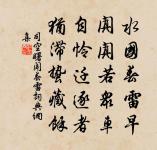 水國春雷早
闐闐若眾車
自憐遷逐者
猶滯蟄藏餘
司空曙聞春雷詞典網
集